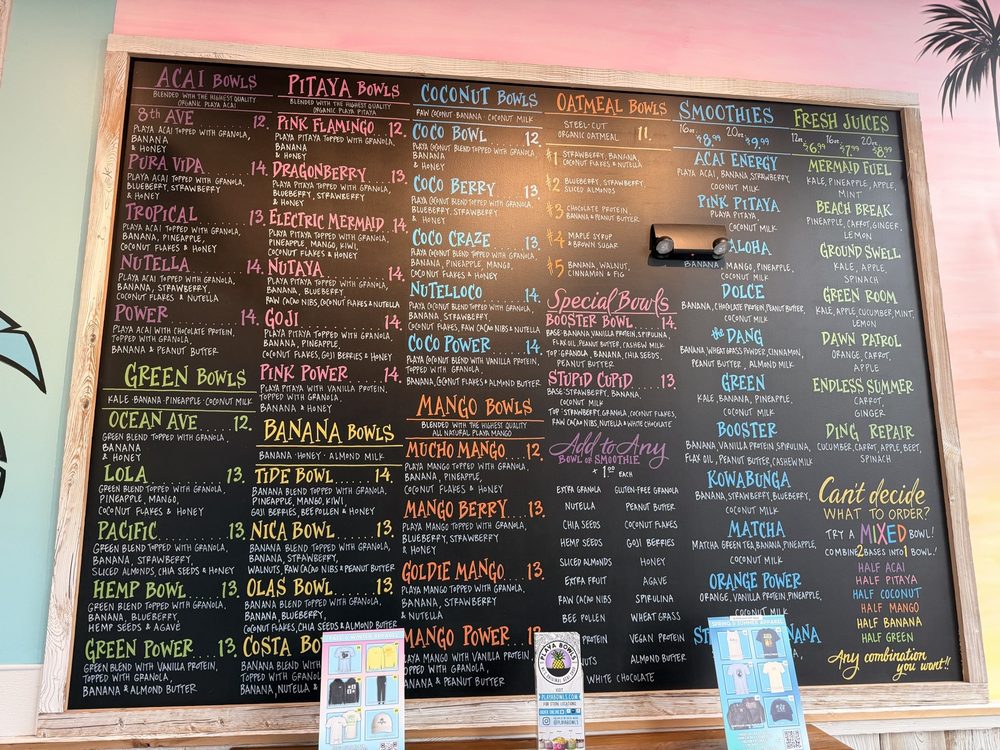 ACAI BOWLS
BLENDED WITH THE HIGHEST QUALITY
ORGANIC PLAYA ACAI
8th AVE 12.
PLAYA ACAI TOPPED WITH GRANOLA,
BANANA
& HONEY
PURA VIDA 14.
PLAYA ACAI TOPPED WITH GRANOLA,
BLUEBERRY, STRAWBERRY
& HONEY
TROPICAL 13.
PLAYA ACAI TOPPED WITH GRANOLA,
BANANA, PINEAPPLE,
COCONUT FLAKES & HONEY
NUTELLA 14.
PLAYA ACAI TOPPED WITH GRANOLA,
BANANA, STRAWBERRY,
COCONUT FLAKES & NUTELLA
POWER 14.
PLAYA ACAI WITH CHOCOLATE PROTEIN,
TOPPED WITH GRANOLA,
BANANA & PEANUT BUTTER
GREEN BOWLS
KALE · BANANA · PINEAPPLE · COCONUT MILK
OCEAN AVE 12.
GREEN BLEND TOPPED WITH GRANOLA,
BANANA
& HONEY
LOLA 13.
GREEN BLEND TOPPED WITH GRANOLA,
PINEAPPLE, MANGO,
COCONUT FLAKES & HONEY
PACIFIC 13.
GREEN BLEND TOPPED WITH GRANOLA,
BANANA, STRAWBERRY,
SLICED ALMONDS, CHIA SEEDS & HONEY
HEMP BOWL 13.
GREEN BLEND TOPPED WITH GRANOLA,
BANANA, BLUEBERRY,
HEMP SEEDS & AGAVE
GREEN POWER 13.
GREEN BLEND WITH VANILLA PROTEIN,
TOPPED WITH GRANOLA,
BANANA & ALMOND BUTTER
PITAYA BOWLS
BLENDED WITH THE HIGHEST QUALITY
ORGANIC PLAYA PITAYA
PINK FLAMINGO 12.
PLAYA PITAYA TOPPED WITH GRANOLA,
BANANA
& HONEY
DRAGONBERRY 13.
PLAYA PITAYA TOPPED WITH GRANOLA,
BLUEBERRY, STRAWBERRY
& HONEY
ELECTRIC MERMAID 14.
PLAYA PITAYA TOPPED WITH GRANOLA,
PINEAPPLE, MANGO, KIWI,
COCONUT FLAKES & HONEY
NUTAYA 14.
PLAYA PITAYA TOPPED WITH GRANOLA,
BANANA, BLUEBERRY,
RAW CACAO NIBS, COCONUT FLAKES & NUTELLA
GOJI 14.
PLAYA PITAYA TOPPED WITH GRANOLA,
BANANA, PINEAPPLE,
COCONUT FLAKES, GOJI BERRIES & HONEY
PINK POWER 14.
PLAYA PITAYA WITH VANILLA PROTEIN,
TOPPED WITH GRANOLA,
BANANA & HONEY
BANANA BOWLS
BANANA · HONEY · ALMOND MILK
TIDE BOWL 14.
BANANA BLEND TOPPED WITH GRANOLA,
PINEAPPLE, MANGO, KIWI,
GOJI BERRIES, BEE POLLEN & HONEY
NICA BOWL 13.
BANANA BLEND TOPPED WITH GRANOLA,
BANANA, STRAWBERRY,
WALNUTS, RAW CACAO NIBS & PEANUT BUTTER
OLAS BOWL 13.
BANANA BLEND TOPPED WITH GRANOLA,
BANANA, BLUEBERRY,
COCONUT FLAKES, CHIA SEEDS & ALMOND BUTTER
COSTA BO
BANANA BLEND WITH
TOPPED WITH GRANOLA,
BANANA, NUTELLA &
COCONUT BOWLS
RAW COCONUT · BANANA · COCONUT MILK
COCO BOWL 12.
PLAYA COCONUT BLEND TOPPED WITH GRANOLA,
BANANA
& HONEY
COCO BERRY 13.
PLAYA COCONUT BLEND TOPPED WITH GRANOLA,
BLUEBERRY, STRAWBERRY
& HONEY
COCO CRAZE 13.
PLAYA COCONUT BLEND TOPPED WITH GRANOLA,
BANANA, PINEAPPLE, MANGO,
COCONUT FLAKES & HONEY
NUTELLOCO 14.
PLAYA COCONUT BLEND TOPPED WITH GRANOLA,
BANANA, STRAWBERRY,
COCONUT FLAKES, RAW CACAO NIBS & NUTELLA
COCO POWER 14.
PLAYA COCONUT BLEND WITH VANILLA PROTEIN,
TOPPED WITH GRANOLA,
BANANA, COCONUT FLAKES & ALMOND BUTTER
MANGO BOWLS
BLENDED WITH THE HIGHEST QUALITY
ALL NATURAL PLAYA MANGO
MUCHO MANGO 12.
PLAYA MANGO TOPPED WITH GRANOLA,
BANANA, PINEAPPLE,
COCONUT FLAKES & HONEY
MANGO BERRY 13.
PLAYA MANGO TOPPED WITH GRANOLA,
BLUEBERRY, STRAWBERRY
& HONEY
GOLDIE MANGO 13.
PLAYA MANGO TOPPED WITH GRANOLA,
BANANA, STRAWBERRY
& NUTELLA
MANGO POWER 13.
PLAYA MANGO WITH VANILLA PROTEIN,
TOPPED WITH GRANOLA,
BANANA & PEANUT BUTTER
OATMEAL BOWLS
STEEL-CUT
ORGANIC OATMEAL 11.
#1 STRAWBERRY, BANANA,
COCONUT FLAKES & NUTELLA
#2 BLUEBERRY, STRAWBERRY,
SLICED ALMONDS
#3 CHOCOLATE PROTEIN,
BANANA & PEANUT BUTTER
#4 MAPLE SYRUP
& BROWN SUGAR
#5 BANANA, WALNUT,
CINNAMON & FIG
Special Bowls
BOOSTER BOWL 14.
BASE: BANANA, VANILLA PROTEIN, SPIRULINA,
FLAX OIL, PEANUT BUTTER, CASHEW MILK
TOP: GRANOLA, BANANA, CHIA SEEDS,
PEANUT BUTTER
STUPID CUPID 13.
BASE: STRAWBERRY, BANANA,
COCONUT MILK
TOP: STRAWBERRY, GRANOLA, COCONUT FLAKES,
RAW CACAO NIBS, NUTELLA & WHITE CHOCOLATE
Add to Any
BOWL OR SMOOTHIE
+ 1.00 EACH
EXTRA GRANOLA
NUTELLA
CHIA SEEDS
HEMP SEEDS
SLICED ALMONDS
EXTRA FRUIT
RAW CACAO NIBS
BEE POLLEN
PROTEIN
WHITE CHOCOLATE
GLUTEN-FREE GRANOLA
PEANUT BUTTER
COCONUT FLAKES
GOJI BERRIES
HONEY
AGAVE
SPIRULINA
WHEAT GRASS
VEGAN PROTEIN
ALMOND BUTTER
SMOOTHIES
16oz. $8.99 20oz. $9.99
ACAI ENERGY
PLAYA ACAI, BANANA, STRAWBERRY,
COCONUT MILK
PINK PITAYA
PLAYA PITAYA,
COCONUT MILK
ALOHA
BANANA, MANGO, PINEAPPLE,
COCONUT MILK
DOLCE
BANANA, CHOCOLATE PROTEIN, PEANUT BUTTER,
COCONUT MILK
the DANG
BANANA, WHEATGRASS POWDER, CINNAMON,
PEANUT BUTTER, ALMOND MILK
GREEN
KALE, BANANA, PINEAPPLE,
COCONUT MILK
BOOSTER
BANANA, VANILLA PROTEIN, SPIRULINA,
FLAX OIL, PEANUT BUTTER, CASHEW MILK
KOWABUNGA
BANANA, STRAWBERRY, BLUEBERRY,
COCONUT MILK
MATCHA
MATCHA GREEN TEA, BANANA, PINEAPPLE,
COCONUT MILK
ORANGE POWER
ORANGE, VANILLA PROTEIN, PINEAPPLE,
COCONUT MILK
FRESH JUICES
12oz. $6.99 16oz. $7.99 20oz. $8.99
MERMAID FUEL
KALE, PINEAPPLE, APPLE,
MINT
BEACH BREAK
PINEAPPLE, CARROT, GINGER,
LEMON
GROUND SWELL
KALE, APPLE,
SPINACH
GREEN ROOM
KALE, APPLE, CUCUMBER, MINT,
LEMON
DAWN PATROL
ORANGE, CARROT,
APPLE
ENDLESS SUMMER
CARROT,
GINGER
DING REPAIR
CUCUMBER, CARROT, APPLE, BEET,
SPINACH
Can't decide
WHAT TO ORDER?
TRY A MIXED BOWL!
COMBINE 2 BASES INTO 1 BOWL!
HALF ACAI
HALF PITAYA
HALF COCONUT
HALF MANGO
HALF BANANA
HALF GREEN
Any combination
you want!!
FALL & WINTER APPAREL
PLAYA BOWLS
VISIT
PLAYABOWLS.COM
FOR STORE LOCATIONS
@PLAYABOWLS
SPRING & SUMMER APPAREL